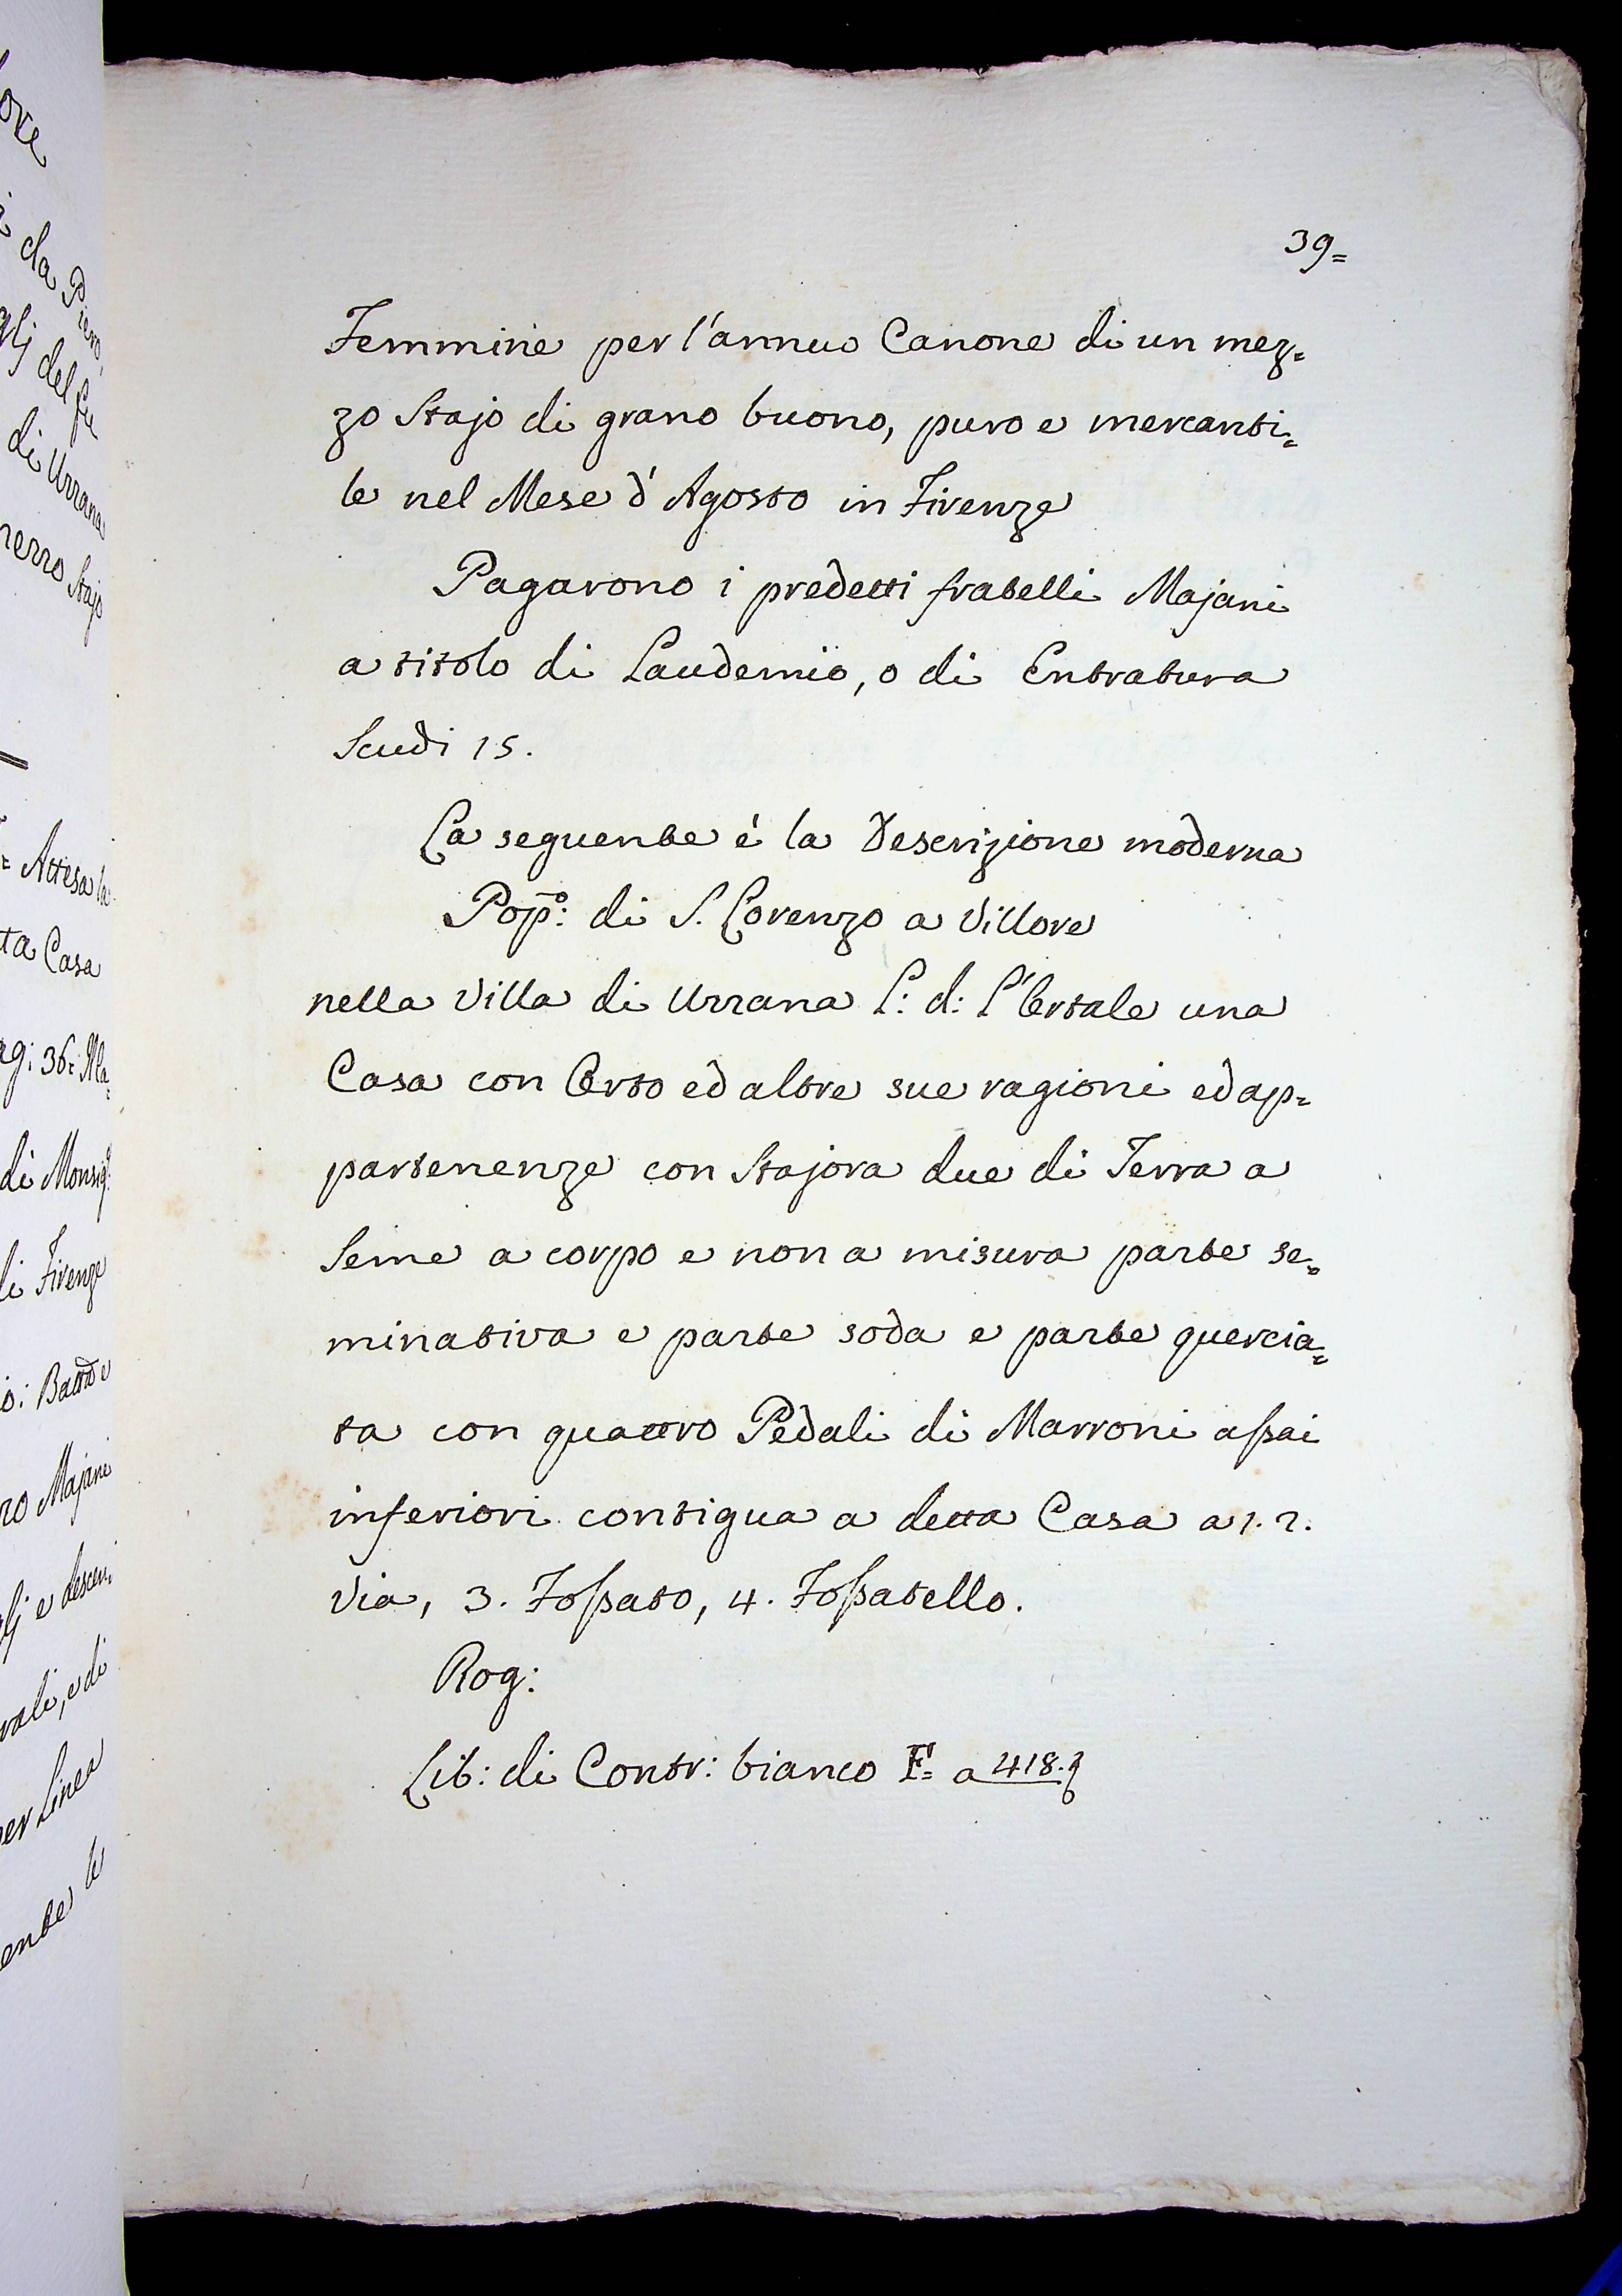 39=
Femmine per l'annuo Canone di un mez=
zo Stajo di grano buono, puro e mercanti=
le nel Mese d'Agosto in Firenze
Pagarono i predetti fratelli Majani
a titolo di Laudemio, o di Entratura
Scudi 15.
La seguente é la Descrizione moderna
Pop̄o: di S. Lorenzo a Villore
nella Villa di Urrana L: d: L'Ortale una
Casa con Orto ed altre sue ragioni ed ap=
partenenze con Stajora due di Terra a
Seme a corpo e non a misura parte se=
minativa e parte soda e parte quercia=
ta con quattro Pedali di Marroni assai
inferiori contigua a detta Casa a 1. 2.
Via, 3. Fossato, 4. Fossatello.
Rog:
Lib: di Contr: bianco F= a 418.
da Piero
glj del fu
di Urrana
Stajo
= Attesa la
ta Casa
ag: 36= Ma=
di Monsig:
di Firenze
ro Majani
lj e descen=
rali, e di
per Linea
ente le